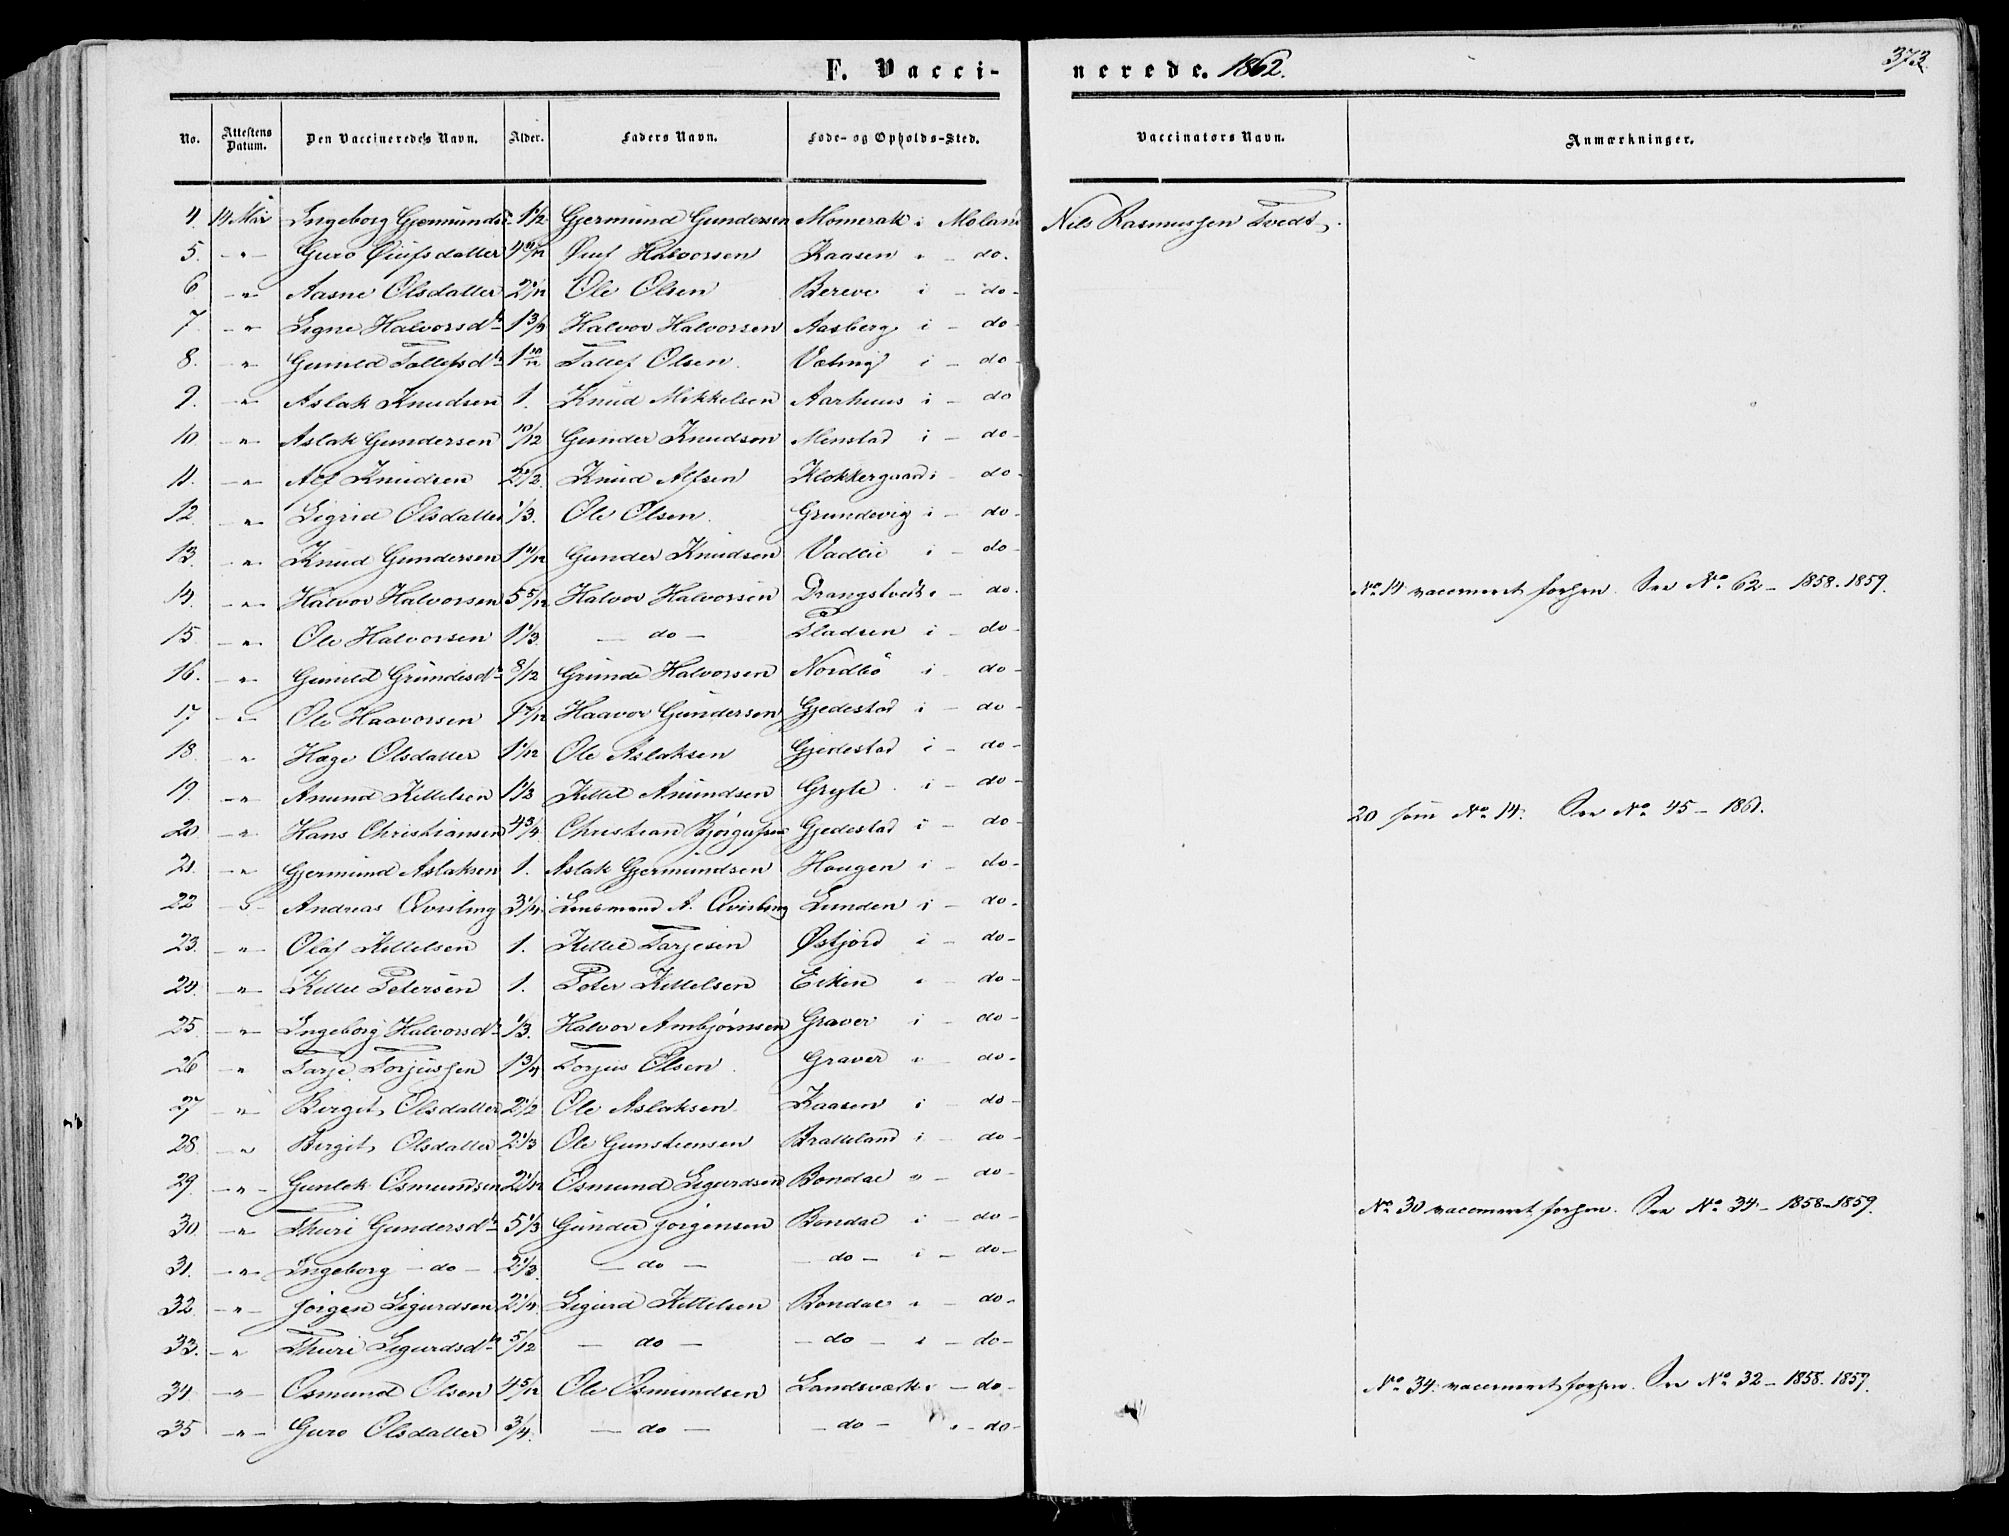 F. Vacci-
nerede. 1862.
373.
No. Attestens Datum. Den Vaccineredes Navn. Alder. Faders Navn. Føde- og Opholds-Sted. Vaccinators Navn. Anmærkninger.
4. 14 Mai Ingeborg Gjermundsd. 1 1/2 Gjermund Gundersen Momerak i Moland Nils Rasmussen Tvedt
5. -"- Guro Øiufsdatter 4 11/12 Øiuf Halvorsen Kaasen i - do.
6 -"- Aasne Olsdatter 2 1/12 Ole Olsen Bereve i - do -
7. -"- Signe Halvorsdtr 1 3/4 Halvor Halvorsen Aasberg i - do -
8. -"- Gunild Tallefsdtr 1 10/12 Tallef Olsen. Væting i - do -
9. -"- Aslak Knudsen 1. Knud Mikkelsen Aarhuus i - do
10 -"- Aslak Gundersen 10/12 Gunder Knudsen Menstad i - do -
11. -"- Alf Knudsen 2 1/2. Knud Alfsen Klokkergaard i - do -
12. -"- Sigrid Olsdatter 1/3. Ole Olsen. Grundevig i - do -
13. -"- Knud Gundersen 1 11/12 Gunder Knudsen Vadlie i - do -
14. -"- Halvor Halvorsen 5 5/12 Halvor Halvorsen Drangstvedt i - do. No. 14 vaccineret forhen. See No. 62 - 1858. 1859.
15. -"- Ole Halvorsen 1 1/3. - do - Pladsen i - do -
16. -"- Gunild Grundesdtr 8/12 Grunde Halvorsen Nordbö i - do -
17. -"- Ole Haavorsen 1 7/12 Haavor Gundersen Gjedestad i - do -
18. -"- Hæge Olsdatter 1 1/12 Ole Aslaksen Gjedestad i - do -
19. -"- Anund Kittelsen 1 1/3 Kittel Anundsen Gryte i - do -
20. -"- Hans Christiansen 4 3/4. Christian Bjørgufsen Gjedestad i - do - 20 som No. 14. See No. 45 - 1861.
21. -"- Gjermund Aslaksen 1. Aslak Gjermundsen Hougen i - do -
22 - " - Andreas Qvisling 3 1/4. Lensmand A. Qvisling Lunden i - do -
23. -"- Olaf Kittelsen 1. Kittel Tarjesen Østjord i - do -
24. -"- Kittel Petersen 1. Peter Kittelsen Eiken i - do -
25. -"- Ingeborg Halvorsdtr 1/3. Halvor Ambjørnsen Graver i - do -
26 -"- Tarje Torjussen 1 3/4 Torjus Olsen. Graver i - do -
27 -"- Bergit Olsdatter 2 1/2 Ole Aslaksen Kaasen i - do -
28. -"- Bergit Olsdatter 2 1/3 Ole Gunstensen Bratteland i - do -
29. -"- Gunlek Osmundsen 2 1/12 Osmund Sigurdsen Bondal " - do -
30. -"- Thuri Gundersdtr 5 1/3 Gunder Jörgensen Bondal i - do - No. 30 vaccineret forhen. See No. 34 - 1858-1859.
31. -"- Ingeborg - do - 2 1/3. - do - - do - i - do -
32 -"- Jörgen Sigurdsen 2 1/4. Sigurd Kittelsen Bondal i - do -
33. -"- Thuri Sigurdsdtr 5/12 - do - - do - i - do -
34. -"- Osmund Olsen 4 5/12 Ole Osmundsen Landsværk i - do - No. 34. vaccineret forhen. See No. 32 - 1858. 1859.
35 -"- Guro Olsdatter 3/4. - do - - do - i - do -